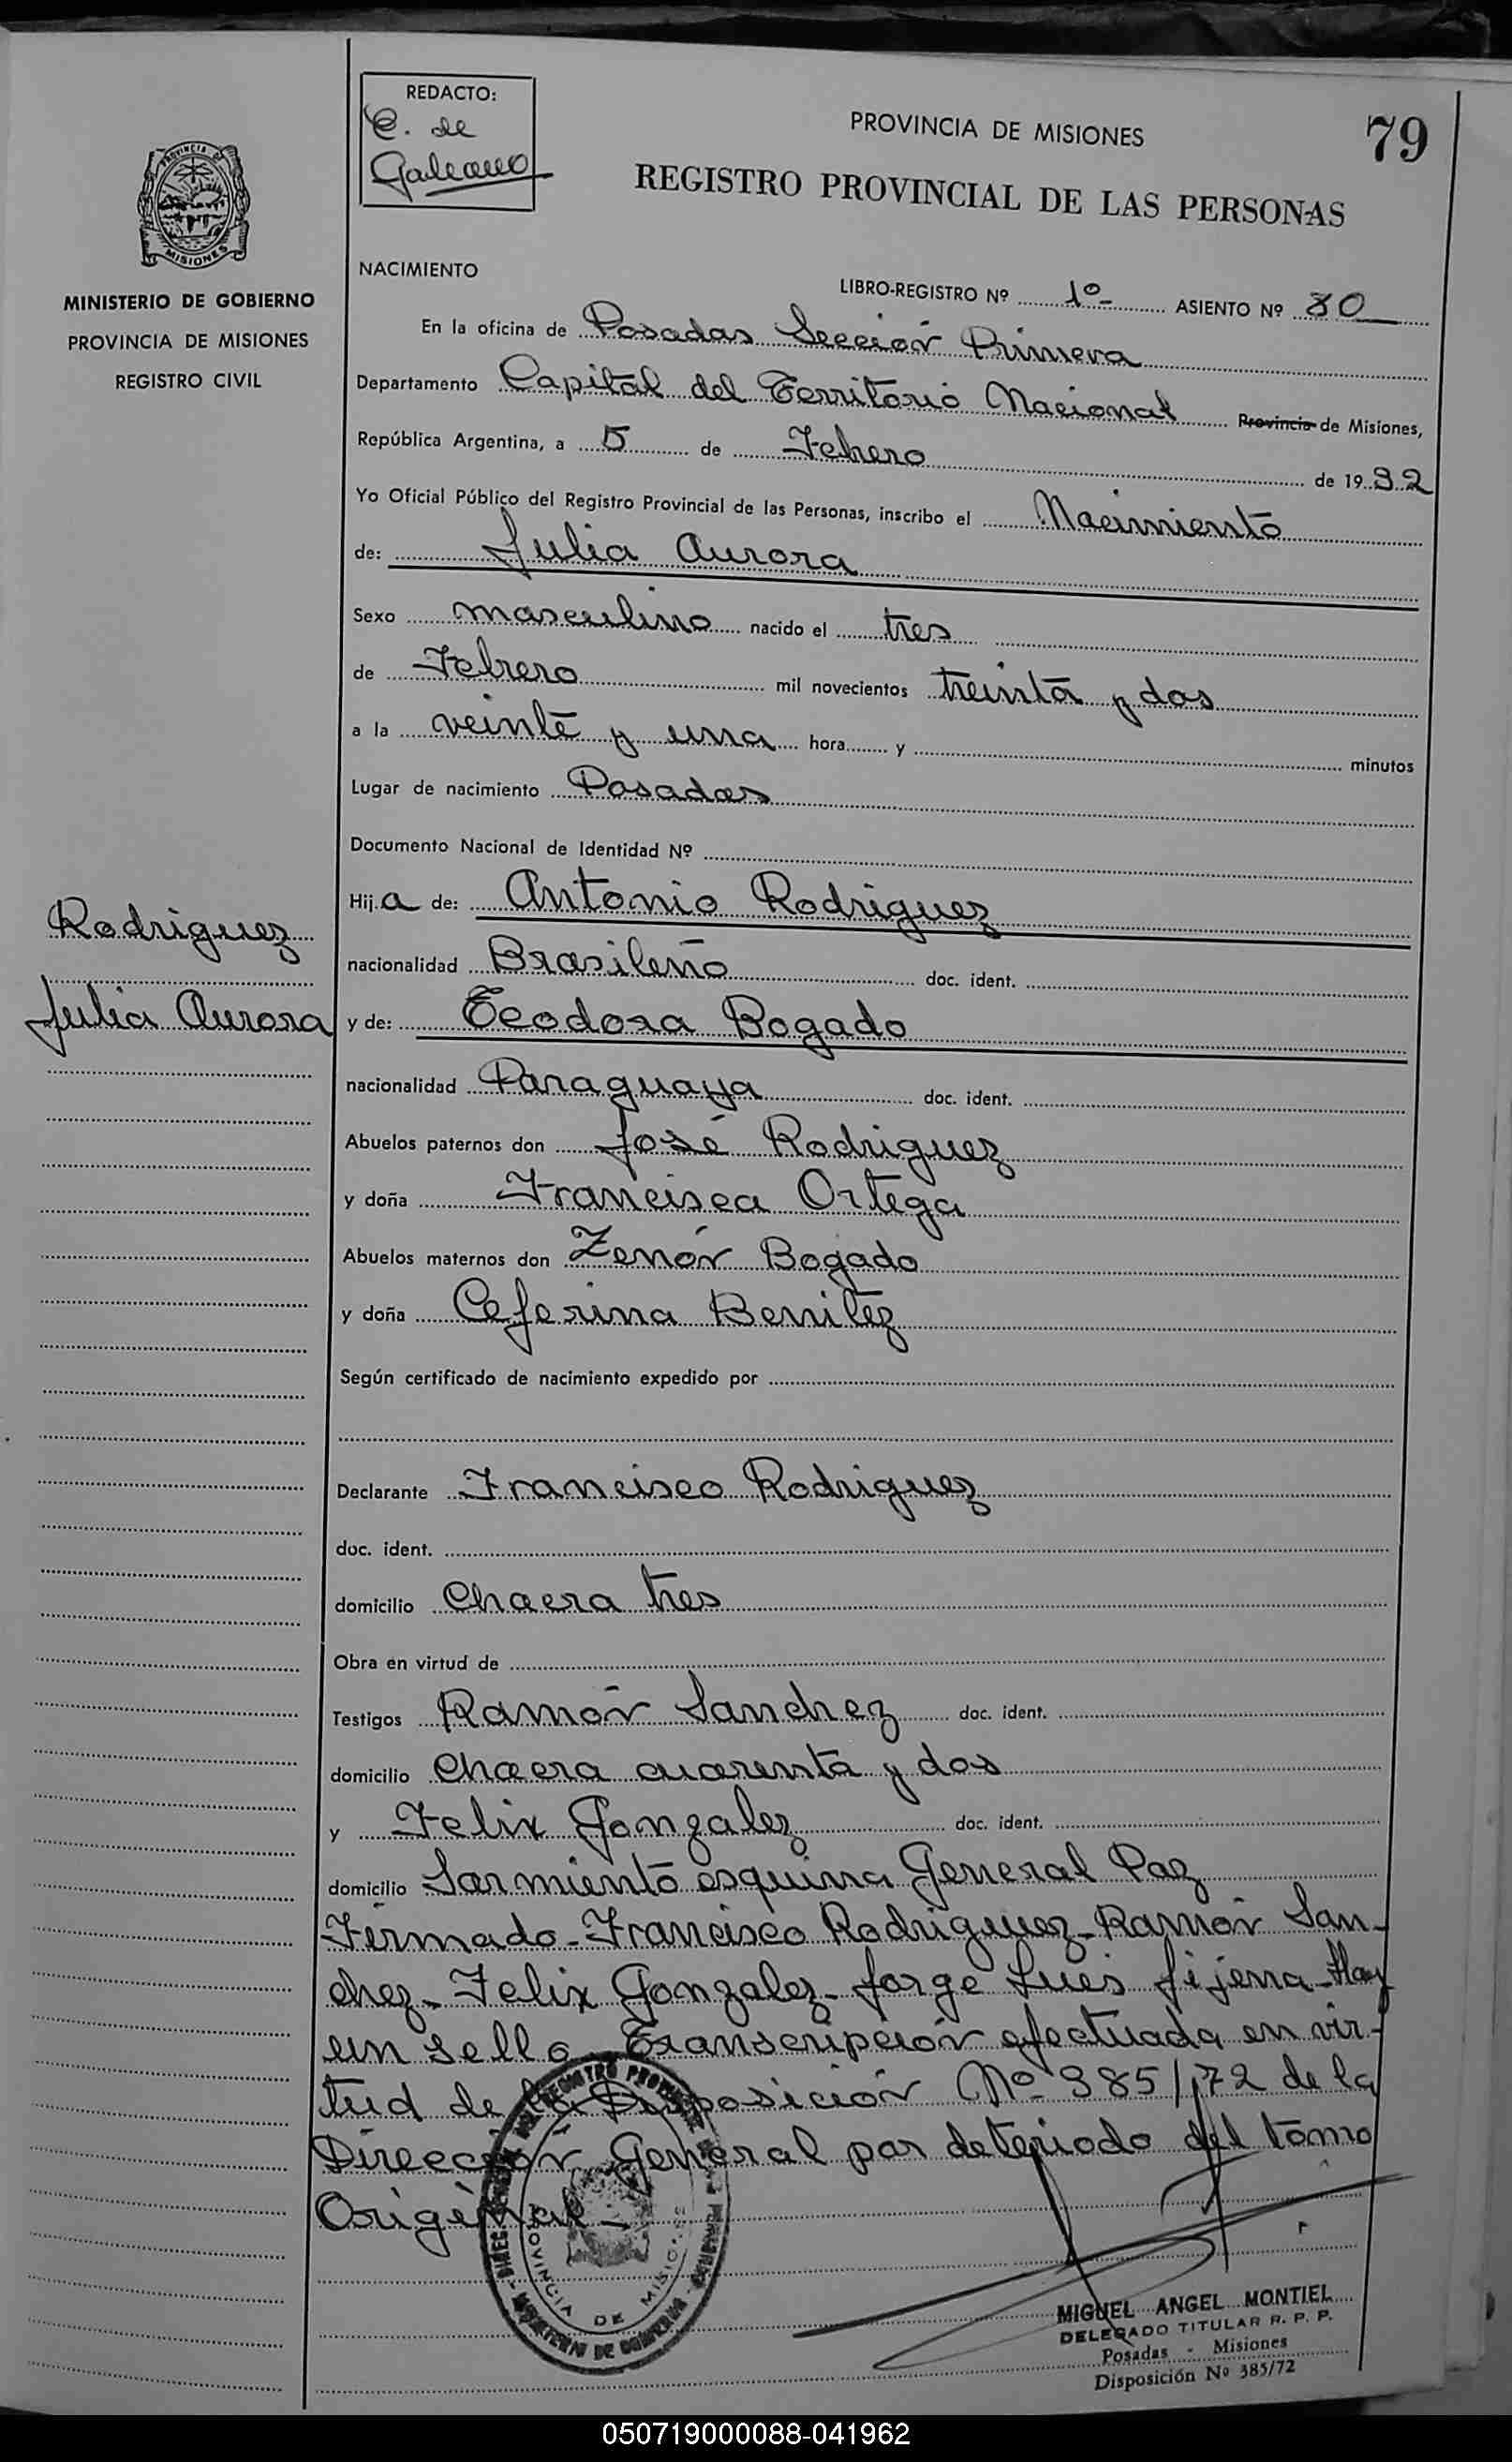 REDACTO:
C. de
Galeano
PROVINCIA DE MISIONES
79
REGISTRO PROVINCIAL DE LAS PERSONAS
PROVINCIA DE
MISIONES
MINISTERIO DE GOBIERNO
PROVINCIA DE MISIONES
REGISTRO CIVIL
NACIMIENTO
LIBRO-REGISTRO Nº 1º- ASIENTO Nº 80
En la oficina de Posadas Sección Primera
Departamento Capital del Territorio Nacional Provincia de Misiones,
República Argentina, a 5 de Febrero de 1932
Yo Oficial Público del Registro Provincial de las Personas, inscribo el Nacimiento
de: Julia Aurora
Sexo masculino nacido el tres
de Febrero mil novecientos treinta y dos
a la veinte y una hora y minutos
Lugar de nacimiento Posadas
Documento Nacional de Identidad Nº
Hija de: Antonio Rodriguez
Rodriguez
nacionalidad Brasileño doc. ident.
Julia Aurora
y de: Teodora Bogado
nacionalidad Paraguaya doc. ident.
Abuelos paternos don José Rodriguez
y doña Francisca Ortega
Abuelos maternos don Zenón Bogado
y doña Ceferina Benitez
Según certificado de nacimiento expedido por
Declarante Francisco Rodriguez
doc. ident.
domicilio Chacra tres
Obra en virtud de
Testigos Ramón Sanchez doc. ident.
domicilio Chacra cuarenta y dos
y Felix Gonzalez doc. ident.
domicilio Sarmiento esquina General Paz
Firmado-Francisco Rodriguez-Ramón San-
chez-Felix Gonzalez-Jorge Luis Fijena-Hay
un sello Transcripción efectuada en vir-
tud de la Disposición Nº 385/72 de la
Dirección General por deteriodo del tomo
Original-
PROVINCIA DE MISIONES
MIGUEL ANGEL MONTIEL
DELEGADO TITULAR R. P. P.
Posadas - Misiones
Disposición Nº 385/72
050719000088-041962